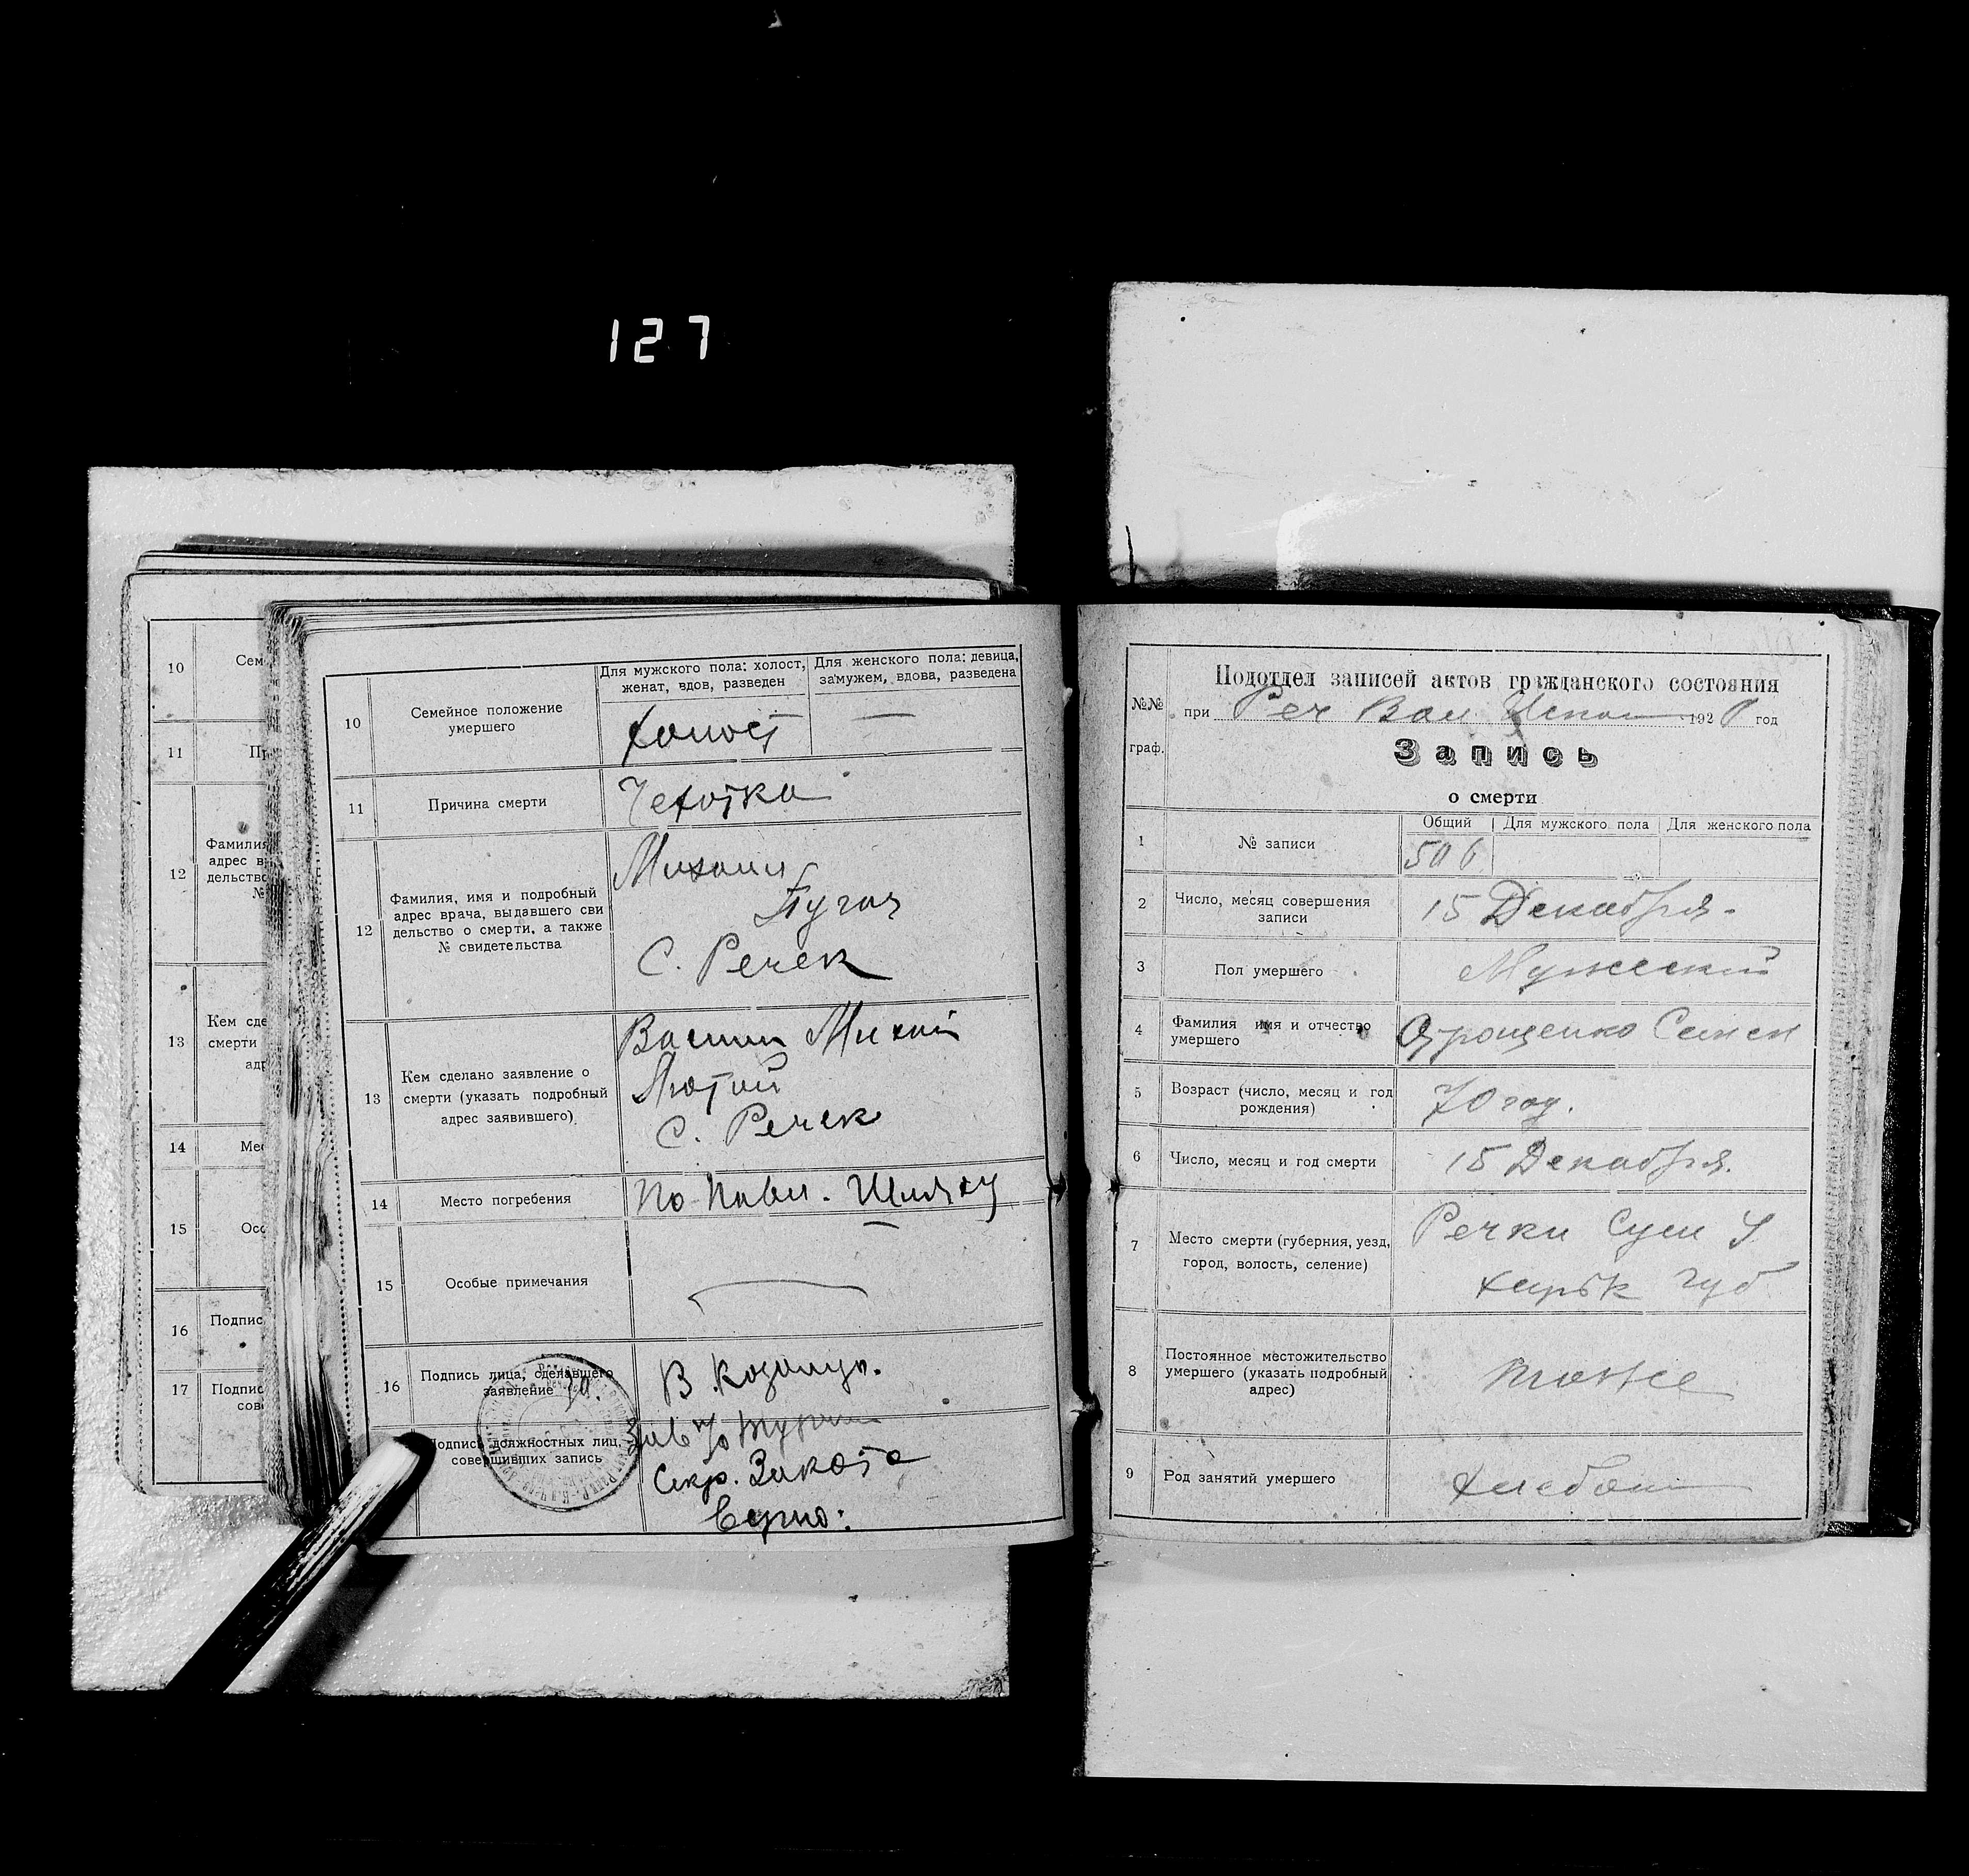 127
10
Сем
11
Пр
12
Фамилия
адрес в
дельство
№
13
Кем сде
смерти
адр
14
Мес
15
Осо
16
Подпис
17
Подпис
сов
10
Семейное положение
умершего
Для мужского пола: холост,
женат, вдов, разведен
Для женского пола: девица,
замужем, вдова, разведена
Холост
—
11
Причина смерти
Чехотка
12
Фамилия, имя и подробный
адрес врача, выдавшего сви
дельство о смерти, а также
№ свидетельства
Михаил
Пугач
С. Речек
13
Кем сделано заявление о
смерти (указать подробный
адрес заявившего)
Васили
Лютий
С. Речек
14
Место погребения
По Павл. Шляху
15
Особые примечания
16
Подпись лица, сделавшего
заявление
В.
Подпись должностных лиц,
совершивших запись
Зав
Секр.
Верно:
№№
граф.
Подотдел записей актов гражданского состояния
при Реч Вол Испол 192 год
Запись
о смерти
1
№ записи
Общий
Для мужского пола
Для женского пола
506
2
Число, месяц совершения
записи
15 Декабря.
3
Пол умершего
Мужеский
4
Фамилия имя и отчество
умершего
Ярощенко Семен
5
Возраст (число, месяц и год
рождения)
70 год.
6
Число, месяц и год смерти
15 Декабря.
7
Место смерти (губерния, уезд,
город, волость, селение)
Речки Сум У
Харьк губ
8
Постоянное местожительство
умершего (указать подробный
адрес)
тоже
9
Род занятий умершего
Хлебоп